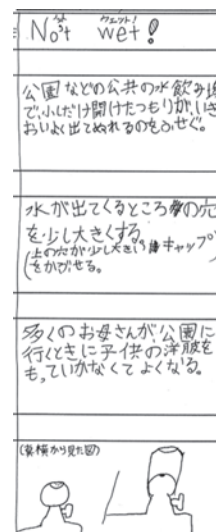 ノット ウェット!
Not wet!
公園などの公共の水飲み場
で、少しだけ開けたつもりが、いき
おいよく出てぬれるのをふせぐ。
水が出てくるところの穴
を少し大きくする。
(上の穴が少し大きい キャップ
をかぶせる。)
多くのお母さんが、公園に
行くときに子供の洋服を
もっていかなくてよくなる。
(真横から見た図)